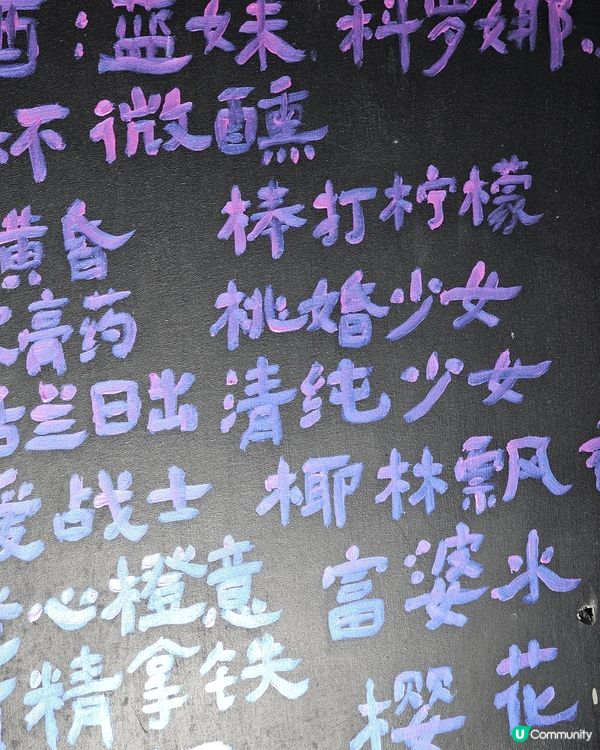 酒：蓝妹、科罗娜、
不微醺
黄昏 棒打柠檬
膏药 桃婚少女
舌兰日出 清纯少女
爱战士 椰林飘风
心橙意 富婆水
精拿铁 樱花
U Community